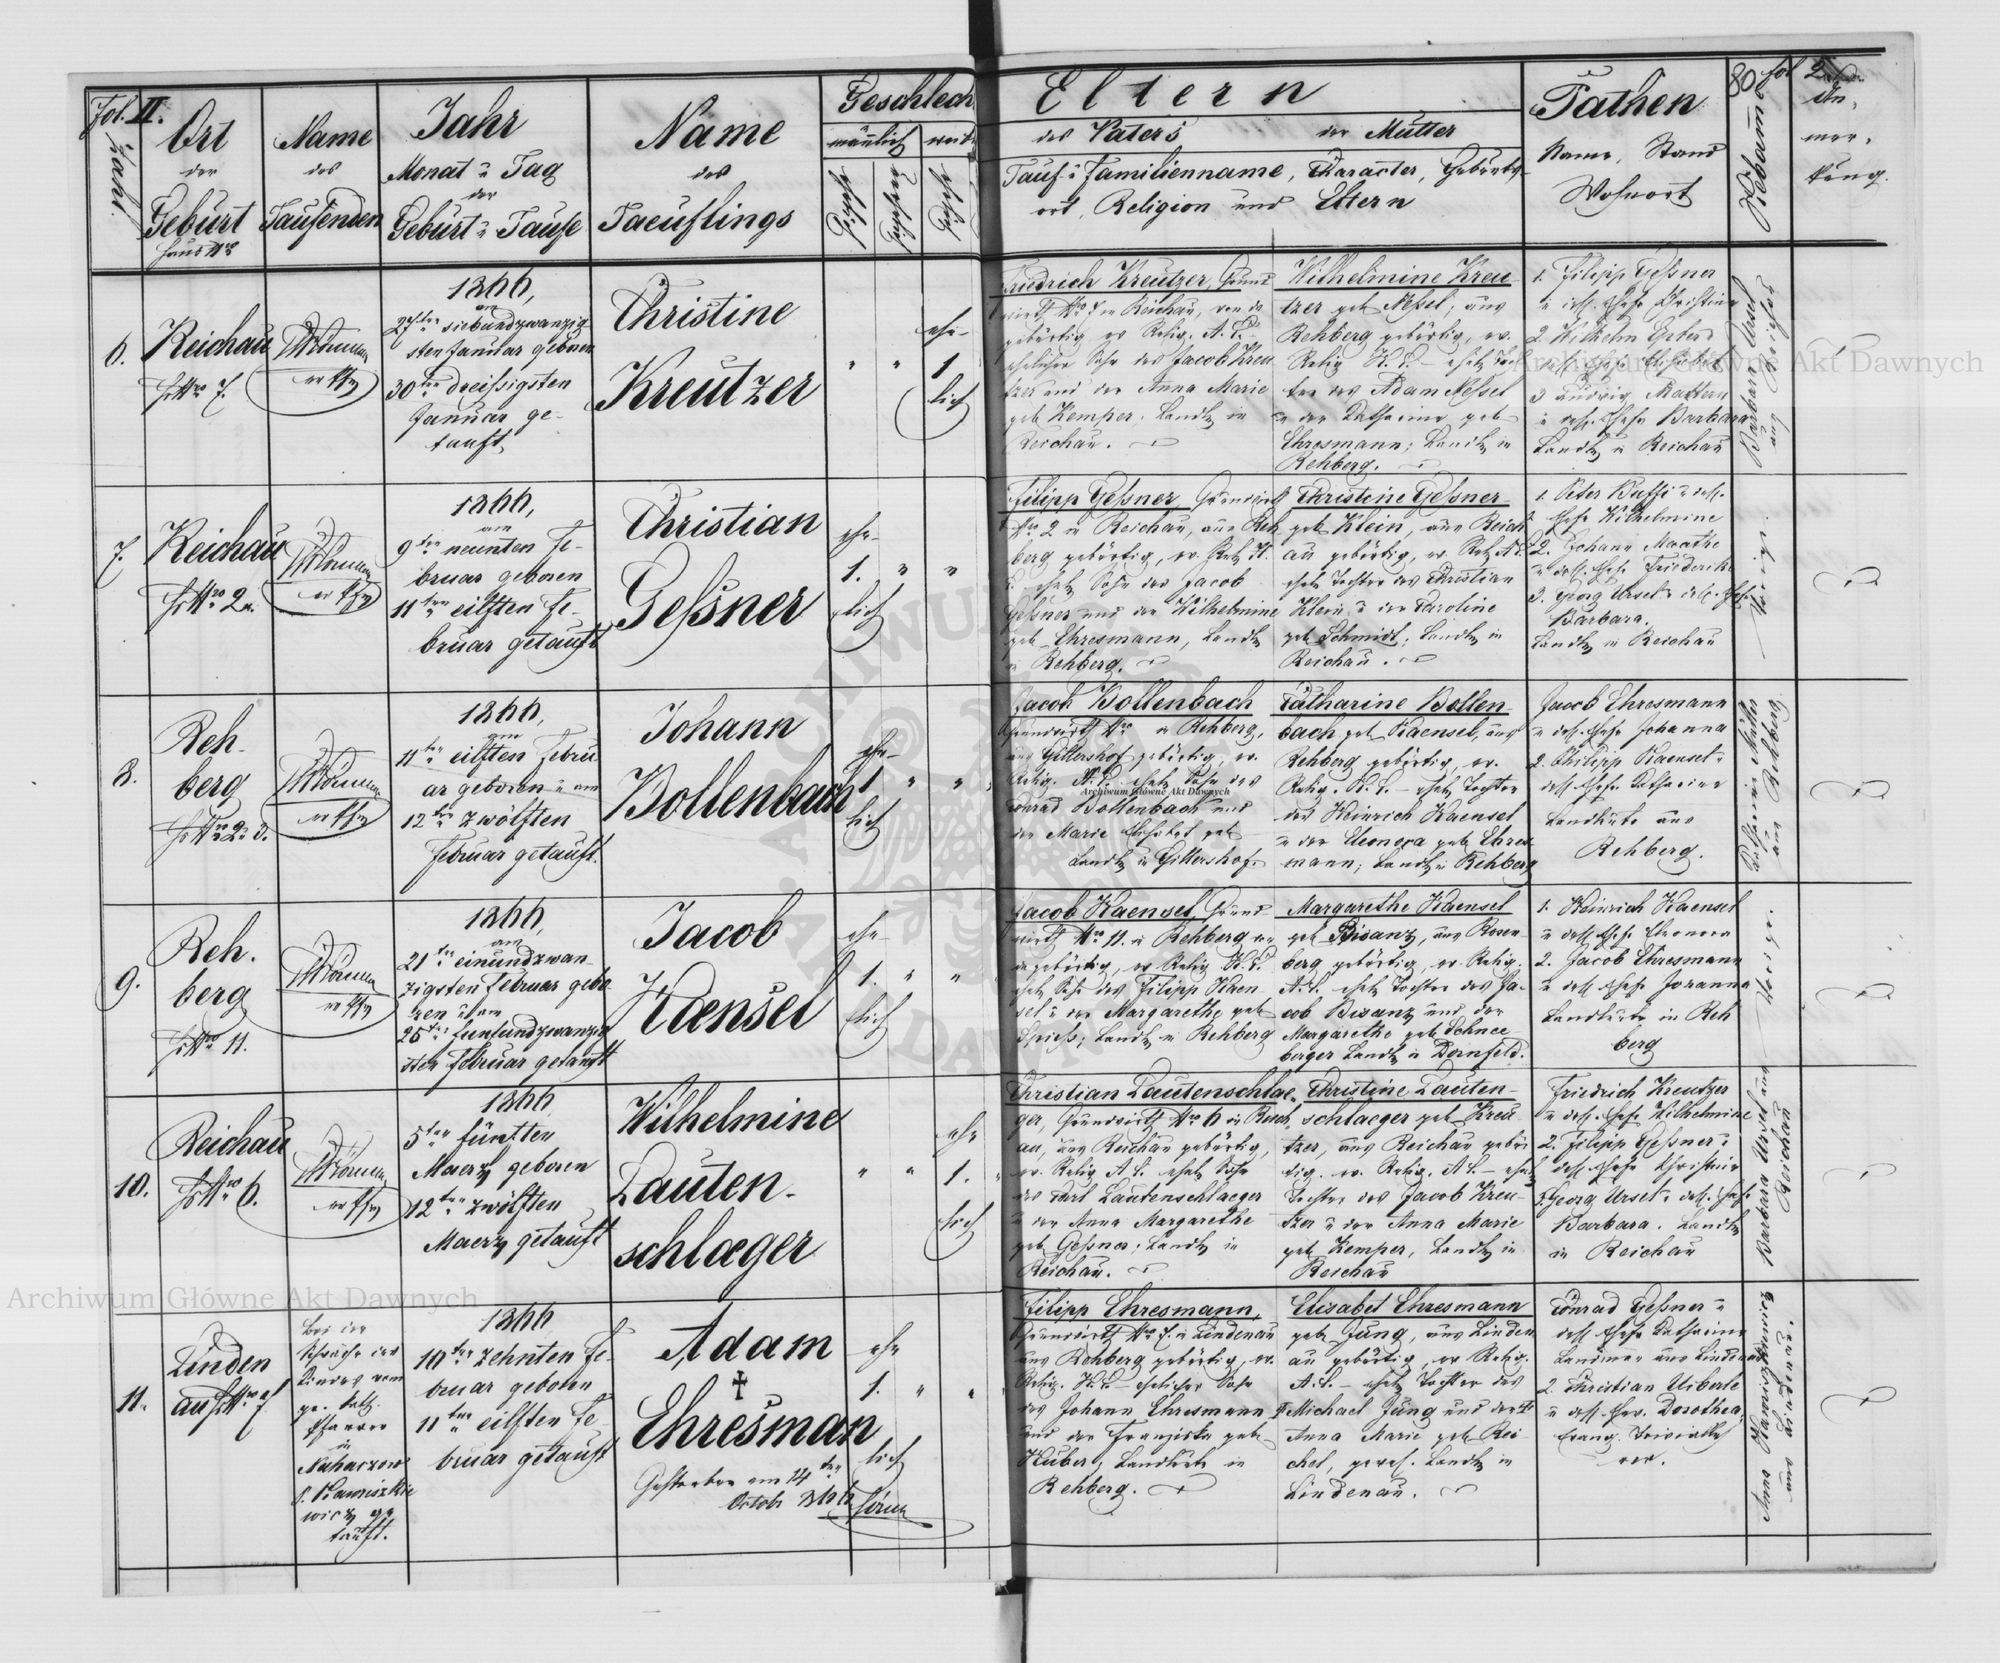 Fol. II.
Zahl.
Ort
der
Geburt
Haus Nro
Name
des
Taufenden
Jahr
Monat u Tag
der
Geburt u Taufe
Name
des
Taeuflings
Geschlech
mänlich
Eltern
des Vaters
der Mutter
Tauf u Familienname, Character, Geburts-
ort, Religion und Eltern
Pathen
Name, Stand
Wohnort
Hebame
80
fol 2
An-
mer-
kung.
6.
Reichau
HsNro 7.
1866,
am
27ten siebundzwanzig
sten Januar geboren
30ten dreissigsten
Januar ge-
tauft,
Christine
Kreutzer
ehe-
1
lich
Friedrich Kreutzer, Grund
wirth Nro 7 in Reichau, von da
gebürtig ev. Relig. A. C.
ehelicher Sohn des Jacob Kreu
tzer und der Anna Marie
geb Kemper, Landlt in
Reichau.
Wilhelmine Kreu
tzer geb Nessel; aus
Rehberg gebürtig, ev.
Relig H. C. - ehel Toch
ter des Adam Nessel
u der Catharine geb
Ehresmann; Landlt in
Rehberg.
1. Filipp Geßner
u dess. Ehefr Christine
2. Wilhelm
3 Ludwig Mattern
u dess. Ehefr Barbara
Landlt in Reichau
Barbara Ursel
aus Reichau
7.
Reichau
HsNro 2.
1866,
am
9ten neunten Fe-
bruar geboren
11ten eilften Fe-
bruar getauft
Christian
Geßner
ehe-
1.
lich
Filipp Geßner Grundwirth
Nro 2 in Reichau, aus Reh
berg gebürtig, ev. Rel. H.
C. ehel Sohn des Jacob
Geßner und der Wilhelmine
geb Ehresmann, Landlt
in Rehberg.
Christine Geßner
geb Klein, aus Reich
au gebürtig, ev. Rel. A C.
ehel Tochter des Christian
Klein u der Caroline
geb Schmidt; Landlt in
Reichau.
1. Peter Buffi u dess.
Ehefr Wilhelmine
2. Johann
u dess. Ehefr Friedericke
3. Georg Ursel u dess. Ehefr
Barbara.
Landlt in Reichau
Vorige.
8.
Reh-
berg
HsNro 23.
1866,
am
11ten eilften Febru
ar geboren u am
12ten zwölften
Februar getauft.
Johann
Bollenbach
ehe-
1
lich
Jacob Bollenbach
Grundwirth Nro in Rehberg,
aus Gillershof gebürtig, ev.
Relig. A. C. ehel Sohn des
Conrad Bollenbach und
der Marie Elisabet geb
Landlt in Gillershof.
Catharine Bollen-
bach geb Kaensel, aus
Rehberg gebürtig, ev.
Relig. H. C. - ehel Tochter
des Heinrich Kaensel
u der Eleonora geb Ehres
mann; Landlt in Rehberg
Jacob Ehresmann
u dess. Ehefr Johanna
2. Philipp Kaensel u
dess Ehefr Catharine
Landleute aus
Rehberg.
aus Rehberg
9.
Reh.
berg
HsNro 11.
1866,
am
21ten einundzwan-
zigsten Februar gebo
ren u am
25ten fünfundzwanzig
sten Februar getauft
Jacob
Kaensel
ehe-
1.
lich
Jacob Kaensel, Grund
wirth Nro 11. in Rehberg von
da gebürtig, ev Relig H. C.
ehel Sohn des Filipp Kaen
sel u der Margarethe geb
Spiess; Landlt in Rehberg
Margarethe Kaensel
geb Bisanz, aus Rosen-
berg gebürtig, ev. Relig.
A. C. ehel Tochter des Ja-
cob Bisanz und der
Margarethe geb Schnee-
berger Landlt in Dornfeld.
1. Heinrich Kaensel
u dess Ehefr Eleonora
2. Jacob Ehresmann
u dess Ehefr Joranna
Landleute in Reh
berg
Vorige.
10.
Reichau
HsNro 6.
1866
5ten fünften
Maerz geboren
12ten zwölften
Maerz getauft
Wilhelmine
Lauten-
schlaeger
ehe
1.
lich
Christian Lautenschlae-
ger, Grundwirth Nro 6 in Reich
au, aus Reichau gebürtig,
ev. Relig A C. ehel Sohn
des Carl Lautenschlaeger
u der Anna Margarethe
geb Geßner; Landlt in
Reichau.
Christine Lauten-
schlaeger geb Kreu-
tzer, aus Reichau gebür
tig. ev. Relig. A C. - ehel
Tochter des Jacob Kreu-
tzer u der Anna Marie
geb Kemper, Landlt in
Reichau
Friedrich Kreutzer
u dess. Ehefr Wilhelmine
2. Filipp Geßner u
dess Ehefr Christine
3. Georg Ursel u dess. Ehefr
Barbara. Landlt
in Reichau
Barbara Ursel aus
Reichau
11.
Linden
au HsNro 7
Bei der
Schwäche des
Kindes vom
gr. kath.
Pfarrer
in
taüft.
1866
10ten zehnten Fe-
bruar geboren
11ten eilften Fe-
bruar getauft
Adam
†
Ehresman
Gestorben am 14ten
Octob 866
ehe
1.
lich
Filipp Ehresmann,
Grundwirth Nro 7. in Lindenau
aus Rehberg gebürtig, ev.
Relig. H. C. - ehelicher Sohn
des Johann Ehresmann
und der Franziska geb
Huber, Landleute in
Rehberg.
Elisabet Ehresmann
geb Jung, aus Linden
au gebürtig, ev Relig.
A. C. - ehel Tochter des
Michael Jung und der
Anna Marie geb Rei-
chel, gewes. Landlt in
Lindenau.
Conrad Geßner u
dess Ehefr Catharine
Landmann aus Lindenau
2. Christian Uiberle
u dess Ehefr. Dorothea,
Evang.
aus Lindenau.
Archiwum Główne Akt Dawnych
Archiwum Główne Akt Dawnych
Archiwum Główne Akt Dawnych